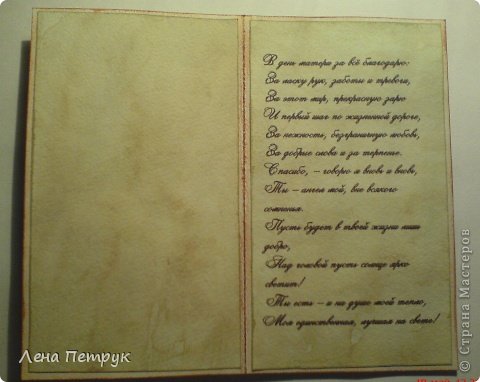 В день матери за всё благодарю:
За ласку рук, заботы и тревоги,
За этот мир, прекрасную зарю
И первый шаг по жизненной дороге,
За нежность, безграничную любовь,
За добрые слова и за терпенье.
Спасибо, – говорю я вновь и вновь,
Ты – ангел мой, вне всякого
сомненья.
Пусть будет в твоей жизни лишь
добро,
Над головой пусть солнце ярко
светит!
Ты есть – и на душе моей тепло,
Моя единственная, лучшая на свете!
Лена Петрук
© Страна Мастеров